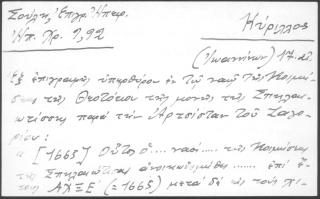 Σούλη, Ἐπιγρ. Ἠπειρ.
Ἠπ. Χρ. 9,92
Κύριλλος
(Ἰωαννίνων) 17. αἰ.
Ἐξ ἐπιγραφῆς ὑπερθύρου ἐν τῷ ναῷ τῆς Κοιμή-
σεως τῆς Θεοτόκου τῆς μονῆς τῆς Σπηλαι-
ωτίσσης παρὰ τὴν Ἀρτσίσταν τοῦ Ζαγο-
ρίου:
« [1665] Οὗτος ὁ .... ναὸς .... τῆς Κοιμήσεως
τῆς Σπηλαιωτίσσης ἀνοικοδομήθη ...... ἐπὶ ἔ-
τους ΑΧΞΕ (= 1665) μετὰ δὲ τοὺς χι-